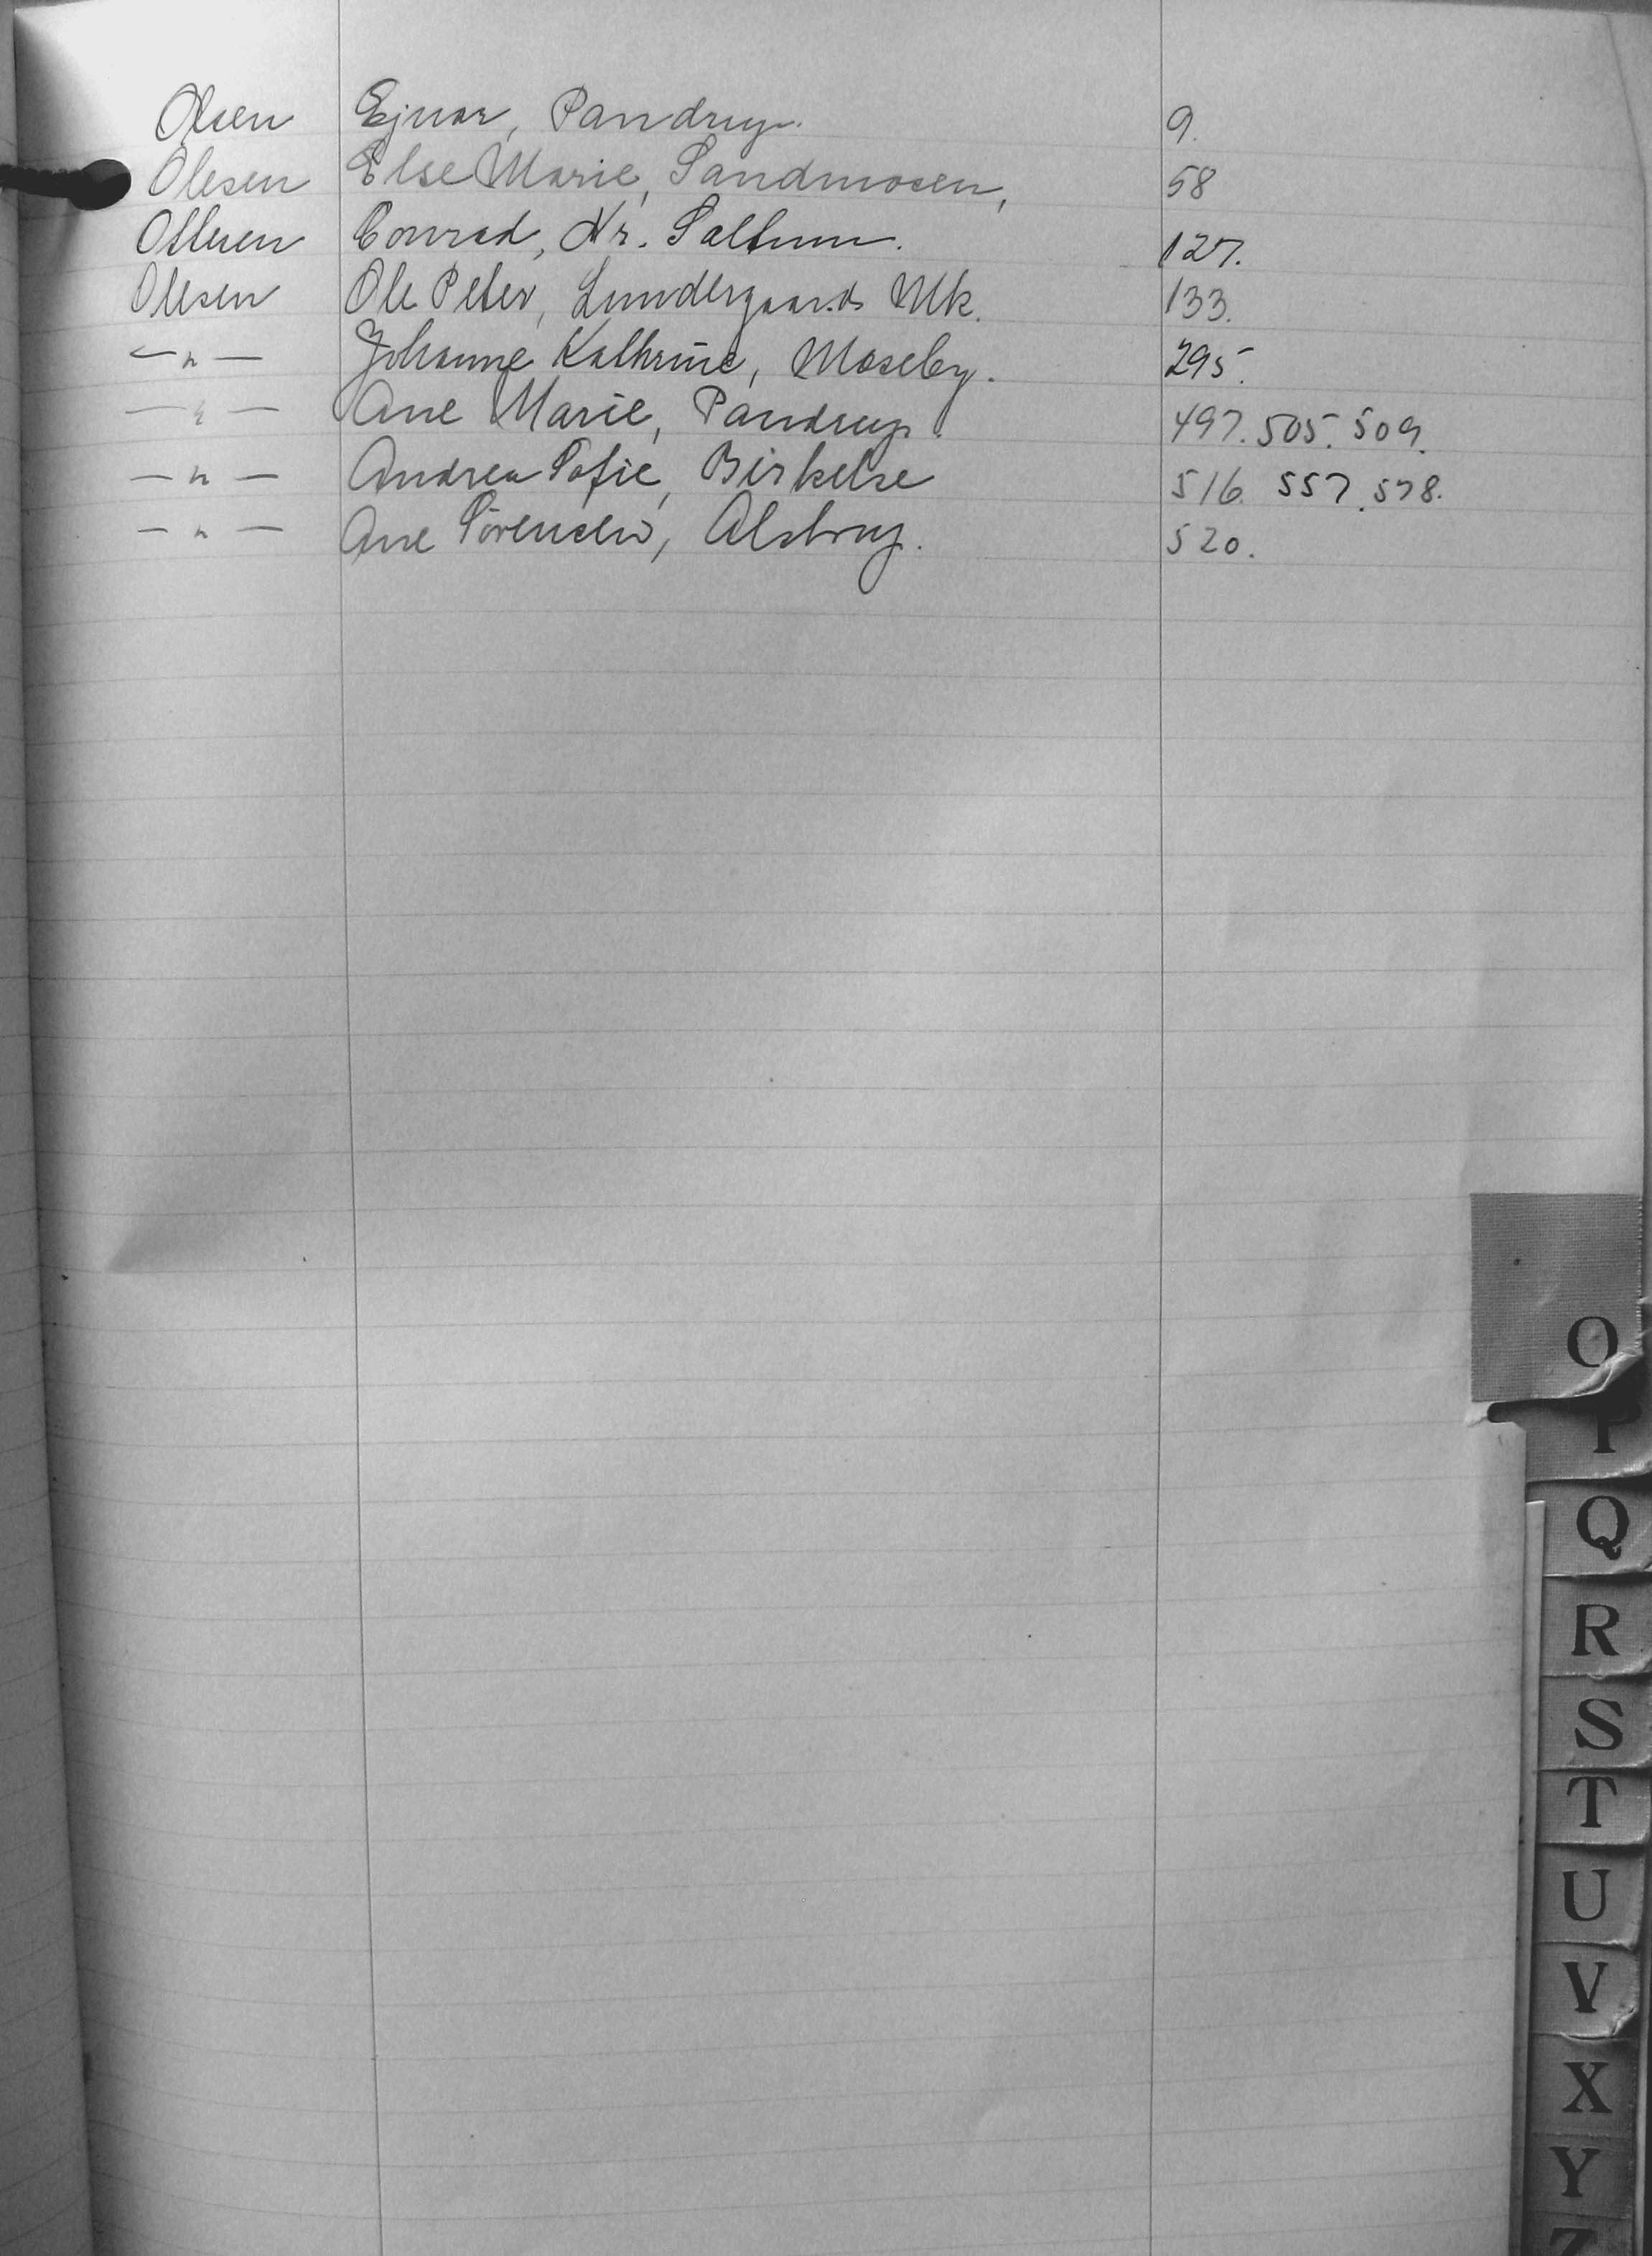 Olsen Ejnar, Pandrup. 9.
Olesen Else Marie, Sandmosen, 58
Ottesen Conrad, Nr. Saltum. 127.
Olesen Ole Peter, Lundergaards Mk. 133.
— " — Johanne Kathrine, Moseby. 295.
— " — Ane Marie, Pandrup. 497. 505. 509.
— " — Andrea Sofie, Birkelse 516. 557. 578.
— " — Ane Sørensen, Alstrup. 520.
O
P
Q
R
S
T
U
V
X
Y
Z